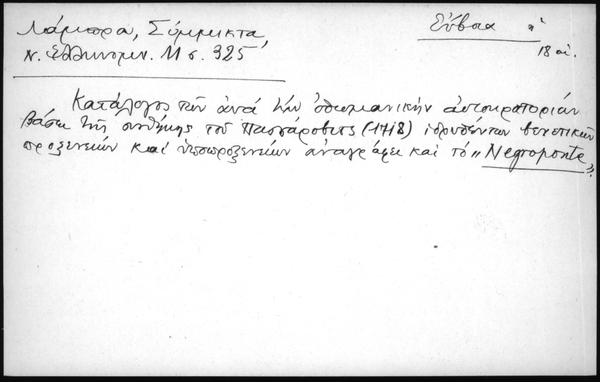 Λάμπρα, Σύμμικτα, Εὔβοια
Ν. Ἑλληνομν. 11 σ. 325 18 αἰ.
Κατάλογος τῶν ἀνά τήν ὀθωμανικήν αὐτοκρατορίαν
βάσει τῆς συνθήκης τοῦ Πασσάροβιτς (1718) ἱδρυθέντων βενετικῶν
προξενείων καί ὑποπροξενείων ἀναγράφει καί τό „Negroponte„